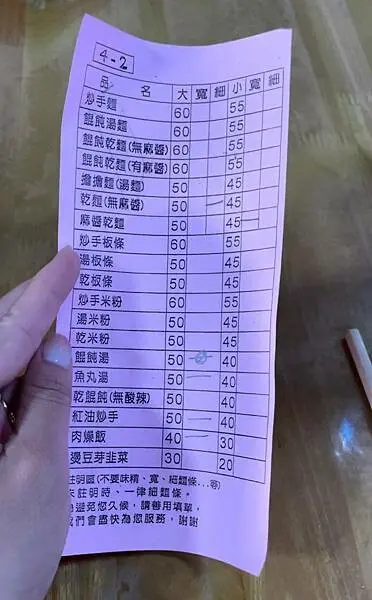 4-2
品名 大 寬 細 小 寬 細
炒手麵 60 55
餛飩湯麵 60 55
餛飩乾麵(無麻醬) 60 55
餛飩乾麵(有麻醬) 60 55
擔擔麵(湯麵) 50 45
乾麵(無麻醬) 50 一 45
麻醬乾麵 50 45 一
炒手板條 60 55
湯板條 50 45
乾板條 50 45
炒手米粉 60 55
湯米粉 50 45
乾米粉 50 45
餛飩湯 50 40
魚丸湯 50 一 40
乾餛飩(無酸辣) 50 40
紅油炒手 50 一 40
肉燥飯 40 一 30
燙豆芽韭菜 30 20
註明區(不要味精、寬、細麵條...等)
未註明時、一律細麵條。
避免您久候,請善用填單,
我們會盡快為您服務,謝謝